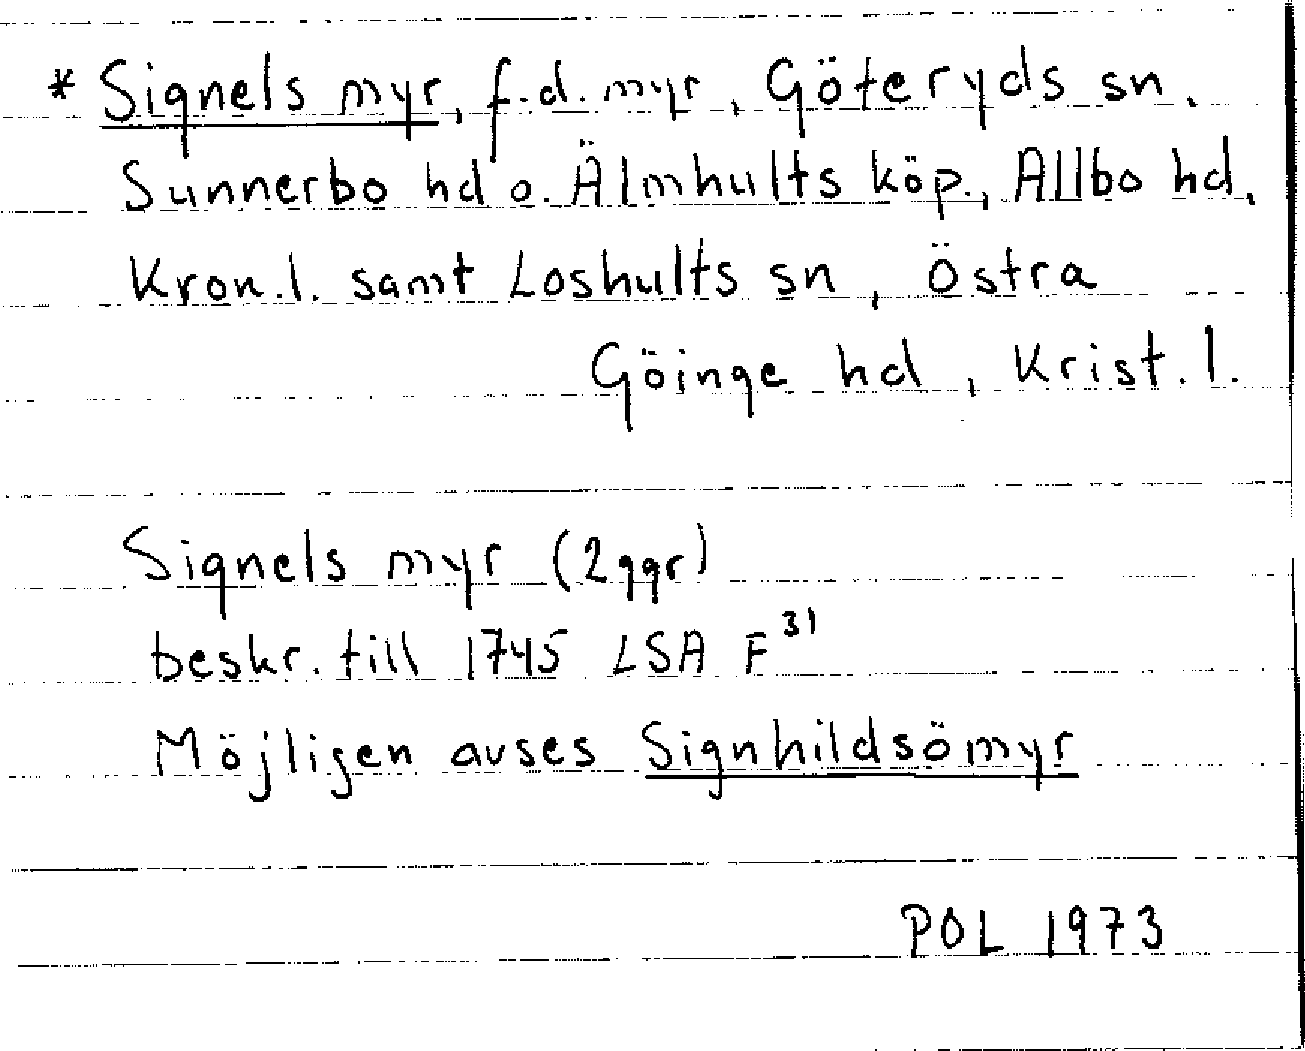 * Signels myr, f.d. myr, Göteryds sn.
Sunnerbo hd o. Älmhults köp., Allbo hd,
Kron.l. samt Loshults sn, Östra
Göinge hd, Krist.l.
Signels myr (2 ggr)
beskr. till 1745 LSA F³¹
Möjligen avses Signhildsömyr
POL 1973